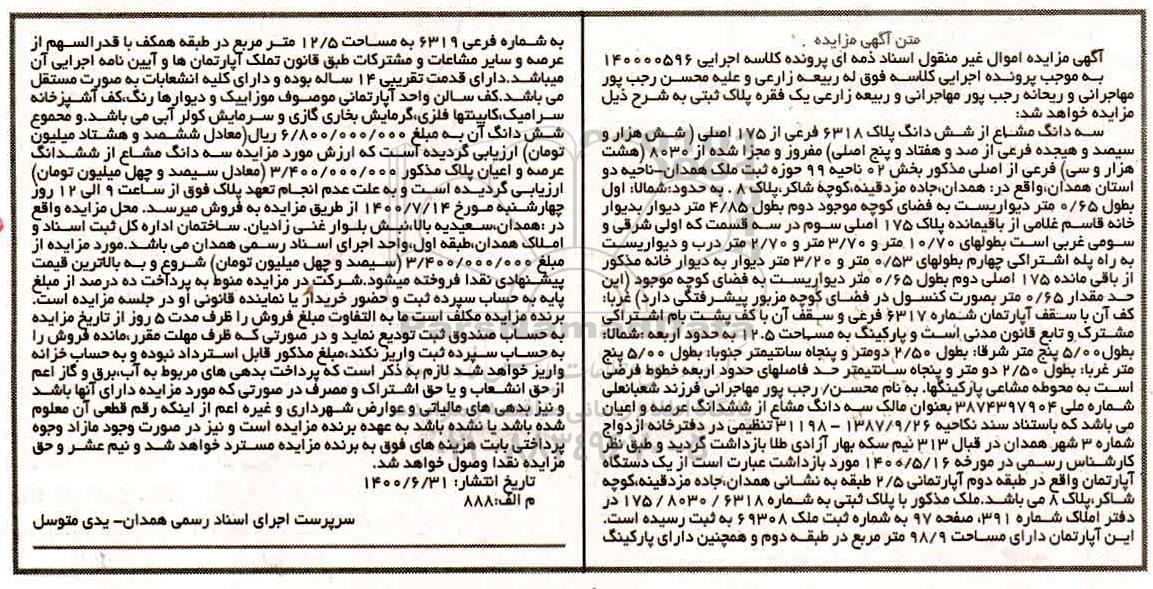 متن آگهی مزایده
آگهی مزایده اموال غیر منقول اسناد ذمه ای پرونده کلاسه اجرایی ۱۴۰۰۰۰۰۵۹۶
به موجب پرونده اجرایی کلاسه فوق له ربیعه زارعی و علیه محسن رجب پور
مهاجرانی و ریحانه رجب پور مهاجرانی و ربیعه زارعی یک فقره پلاک ثبتی به شرح ذیل
مزایده خواهد شد:
سه دانگ مشاع از شش دانگ پلاک ۶۳۱۸ فرعی از ۱۷۵ اصلی (شش هزار و
سیصد و هیجده فرعی از صد و هفتاد و پنج اصلی) مفروز و مجزا شده از ۸۰۳۰ (هشت
هزار و سی) فرعی از اصلی مذکور بخش ۰۲ ناحیه ۹۹ حوزه ثبت ملک همدان-ناحیه دو
استان همدان،واقع در: همدان،جاده مزدقینه،کوچه شاکر،پلاک ۸ . به حدود:شمالا: اول
بطول ۰/۶۵ متر دیواریست به فضای کوچه موجود دوم بطول ۴/۸۵ متر دیوار بدیوار
خانه قاسم غلامی از باقیمانده پلاک ۱۷۵ اصلی سوم در سه قسمت که اولی شرقی و
سومی غربی است بطولهای ۱۰/۷۰ متر و ۳/۷۰ متر و ۲/۷۰ متر درب و دیواریست
به راه پله اشتراکی چهارم بطولهای ۰/۵۳ متر و ۳/۲۰ متر دیوار به دیوار خانه مذکور
از باقی مانده ۱۷۵ اصلی دوم بطول ۰/۶۵ متر دیواریست به فضای کوچه موجود (این
حد مقدار ۰/۶۵ متر بصورت کنسول در فضای کوچه مزبور پیشرفتگی دارد) غربا:
کف آن با سقف آپارتمان شماره ۶۳۱۷ فرعی و سقف آن با کف پشت بام اشتراکی
مشترک و تابع قانون مدنی است و پارکینگ به مساحت ۱۲.۵ به حدود اربعه :شمالا:
بطول۵/۰۰ پنج متر شرقا: بطول ۲/۵۰ دومتر و پنجاه سانتیمتر جنوبا: بطول ۵/۰۰ پنج
متر غربا: بطول ۲/۵۰ دو متر و پنجاه سانتیمتر حد فاصلهای حدود اربعه خطوط فرضی
است به محوطه مشاعی پارکینگها. به نام محسن/ رجب پور مهاجرانی فرزند شعبانعلی
شماره ملی ۳۸۷۴۳۹۷۹۰۴ بعنوان مالک سه دانگ مشاع از ششدانگ عرصه و اعیان
می باشد که باستناد سند نکاحیه ۱۳۸۷/۹/۲۶- ۳۱۱۹۸ تنظیمی در دفترخانه ازدواج
شماره ۳ شهر همدان در قبال ۳۱۳ نیم سکه بهار آزادی طلا بازداشت گردید و طبق نظر
کارشناس رسمی در مورخه ۱۴۰۰/۵/۱۶ مورد بازداشت عبارت است از یک دستگاه
آپارتمان واقع در طبقه دوم آپارتمانی ۲/۵ طبقه به نشانی همدان،جاده مزدقینه،کوچه
شاکر،پلاک ۸ می باشد.ملک مذکور با پلاک ثبتی به شماره ۶۳۱۸ / ۸۰۳۰ / ۱۷۵ در
دفتر املاک شماره ۳۹۱، صفحه ۹۷ به شماره ثبت ملک ۶۹۳۰۸ به ثبت رسیده است.
این آپارتمان دارای مساحت ۹۸/۹ متر مربع در طبقه دوم و همچنین دارای پارکینگ
به شماره فرعی ۶۳۱۹ به مساحت ۱۲/۵ متر مربع در طبقه همکف با قدرالسهم از
عرصه و سایر مشاعات و مشترکات طبق قانون تملک آپارتمان ها و آیین نامه اجرایی آن
میباشد.دارای قدمت تقریبی ۱۴ ساله بوده و دارای کلیه انشعابات به صورت مستقل
می باشد.کف سالن واحد آپارتمانی موصوف موزاییک و دیوارها رنگ،کف آشپزخانه
سرامیک،کابینتها فلزی،گرمایش بخاری گازی و سرمایش کولر آبی می باشد.و مجموع
شش دانگ آن به مبلغ ۶/۸۰۰/۰۰۰/۰۰۰ ریال(معادل ششصد و هشتاد میلیون
تومان) ارزیابی گردیده است که ارزش مورد مزایده سه دانگ مشاع از ششدانگ
عرصه و اعیان پلاک مذکور ۳/۴۰۰/۰۰۰/۰۰۰ (معادل سیصد و چهل میلیون تومان)
ارزیابی گردیده است و به علت عدم انجام تعهد پلاک فوق از ساعت ۹ الی ۱۲ روز
چهارشنبه مورخ ۱۴۰۰/۷/۱۴ از طریق مزایده به فروش میرسد. محل مزایده واقع
در :همدان،سعیدیه بالا،نبش بلوار غنی زادیان. ساختمان اداره کل ثبت اسناد و
املاک همدان،طبقه اول،واحد اجرای اسناد رسمی همدان می باشد.مورد مزایده از
مبلغ ۳/۴۰۰/۰۰۰/۰۰۰ (سیصد و چهل میلیون تومان) شروع و به بالاترین قیمت
پیشنهادی نقدا فروخته میشود.شرکت در مزایده منوط به پرداخت ده درصد از مبلغ
پایه به حساب سپرده ثبت و حضور خریدار یا نماینده قانونی او در جلسه مزایده است.
برنده مزایده مکلف است ما به التفاوت مبلغ فروش را ظرف مدت ۵ روز از تاریخ مزایده
به حساب صندوق ثبت تودیع نماید و در صورتی که ظرف مهلت مقرر،مانده فروش را
به حساب سپرده ثبت واریز نکند،مبلغ مذکور قابل استرداد نبوده و به حساب خزانه
واریز خواهد شد لازم به ذکر است که پرداخت بدهی های مربوط به آب،برق و گاز اعم
از حق انشعاب و یا حق اشتراک و مصرف در صورتی که مورد مزایده دارای آنها باشد
و نیز بدهی های مالیاتی و عوارض شهرداری و غیره اعم از اینکه رقم قطعی آن معلوم
شده باشد یا نشده باشد به عهده برنده مزایده است و نیز در صورت وجود مازاد وجوه
پرداختی بابت هزینه های فوق به برنده مزایده مسترد خواهد شد و نیم عشر و حق
مزایده نقدا وصول خواهد شد.
تاریخ انتشار: ۱۴۰۰/۶/۳۱
م الف:۸۸۸
سرپرست اجرای اسناد رسمی همدان- یدی متوسل
ParsNamadData